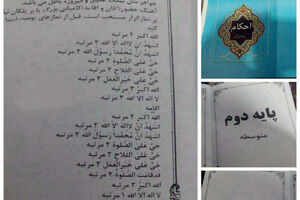 آهنگ حضور اذان و اقامه
بر نمازگزار مستحب است، قبل از نمازهای یومیه
الله اکبر ۲ مرتبه
اشهد ان لااله الا الله ۲ مرتبه
اشهد ان محمداً رسول الله ۲ مرتبه
حی علی الصلوة ۲ مرتبه
حی علی الفلاح ۲ مرتبه
حی علی خیرالعمل ۲ مرتبه
الله اکبر ۲ مرتبه
لا اله الا الله ۲ مرتبه
اقامه
الله اکبر ۲ مرتبه
اشهد ان لااله الا الله ۲ مرتبه
اشهد ان محمداً رسول الله ۲ مرتبه
حی علی الصلوة ۲ مرتبه
حی علی الفلاح ۲ مرتبه
حی علی خیرالعمل ۲ مرتبه
قدقامت الصلوة ۲ مرتبه
الله اکبر ۲ مرتبه
لا اله الا الله ۱ مرتبه
احکام
پایه دوم
متوسطه